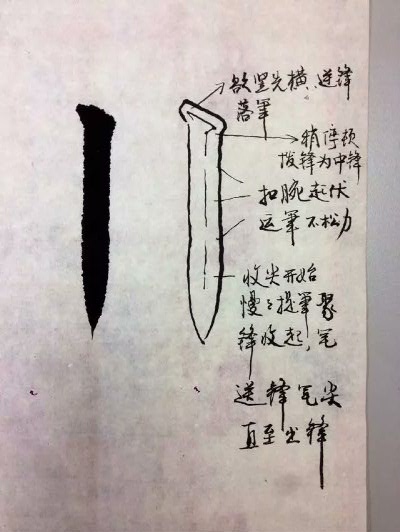 欲竖先横、逆锋
落筆
稍停顿
拨锋为中锋
扣腕起伏
运筆不松力
收尖开始
慢々提筆聚
锋收起,笔
送锋笔尖
直至出锋